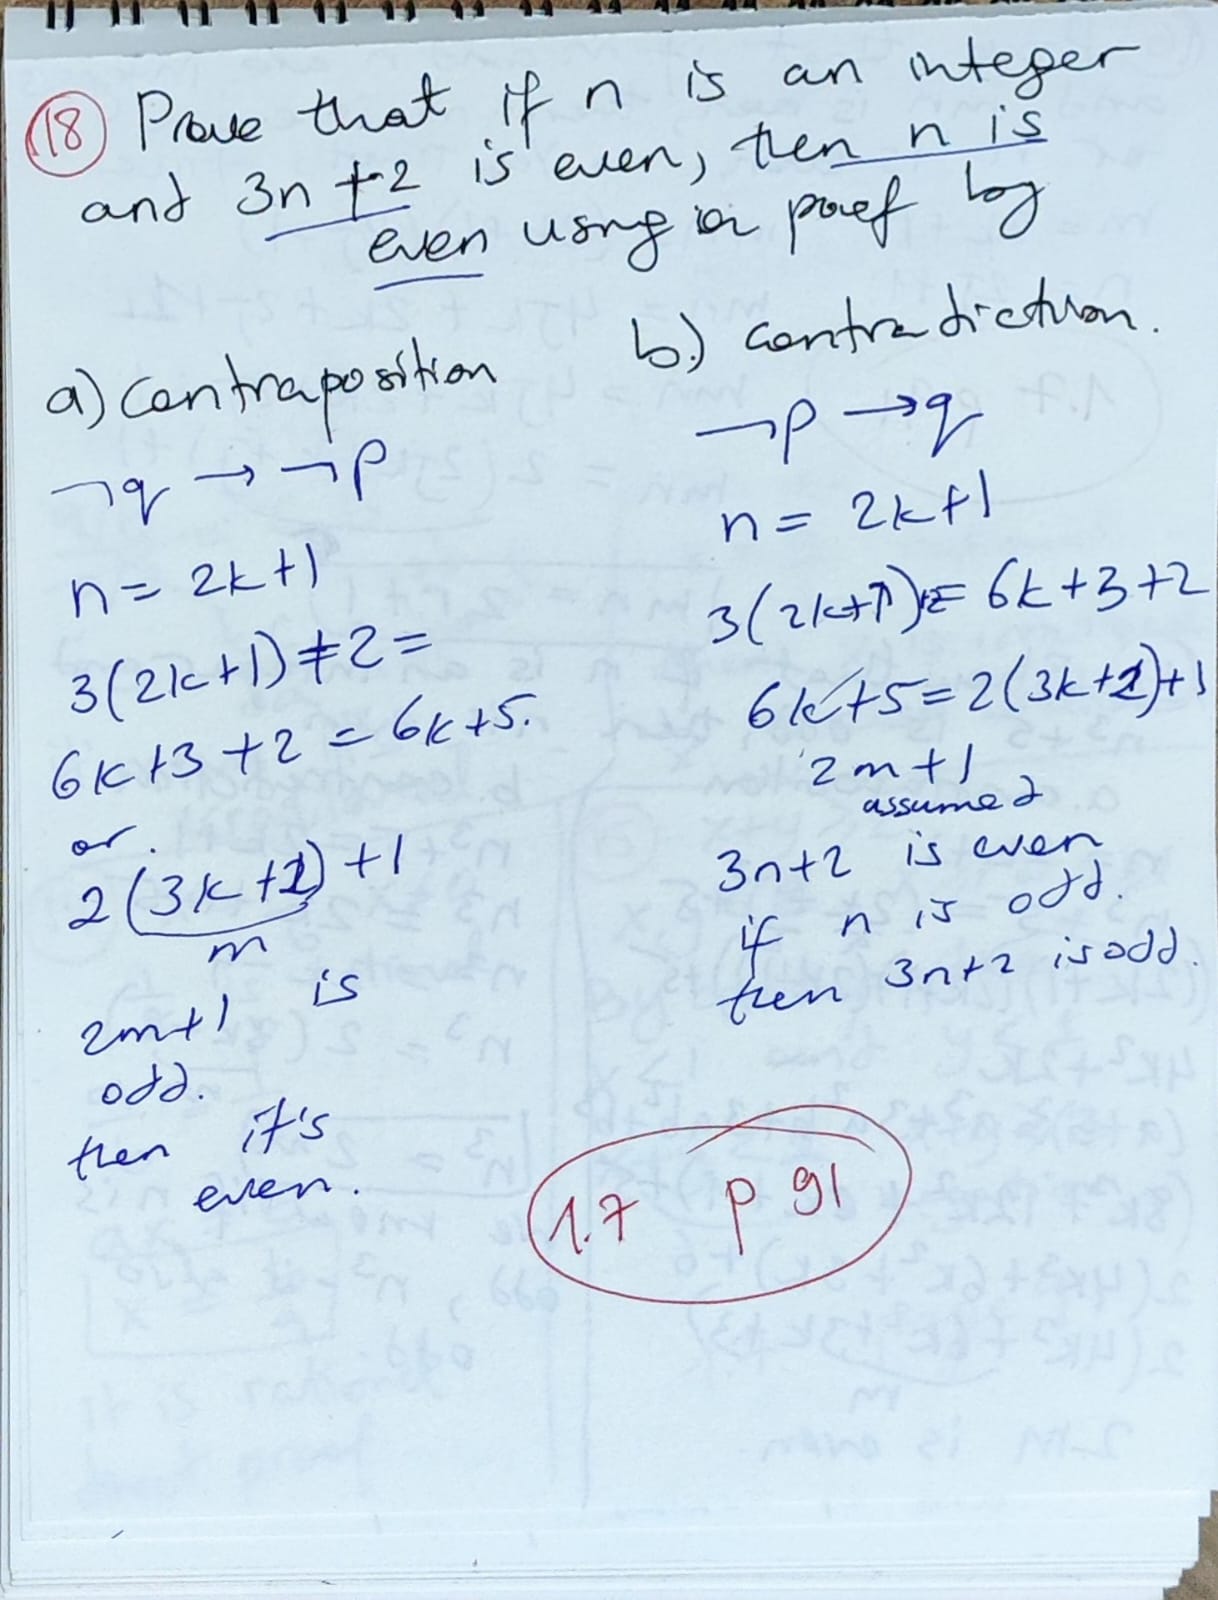 18 Prove that if n is an integer
and 3n + 2 is even, then n is
even using a proef by
a) contraposition
¬q → ¬p
n = 2k+1
3(2k+1)+2 =
6k+3+2 = 6k+5.
or.
2(3k+2)+1
m
2m+1 is
odd.
then it's
even.
b.) contradiction.
¬p → q
n = 2k+1
3(2k+1)+2= 6k+3+2
6k+5=2(3k+2)+1
2m+1
assumed
3n+2 is even
if n is odd.
then 3n+2 is odd.
1.7 p 91